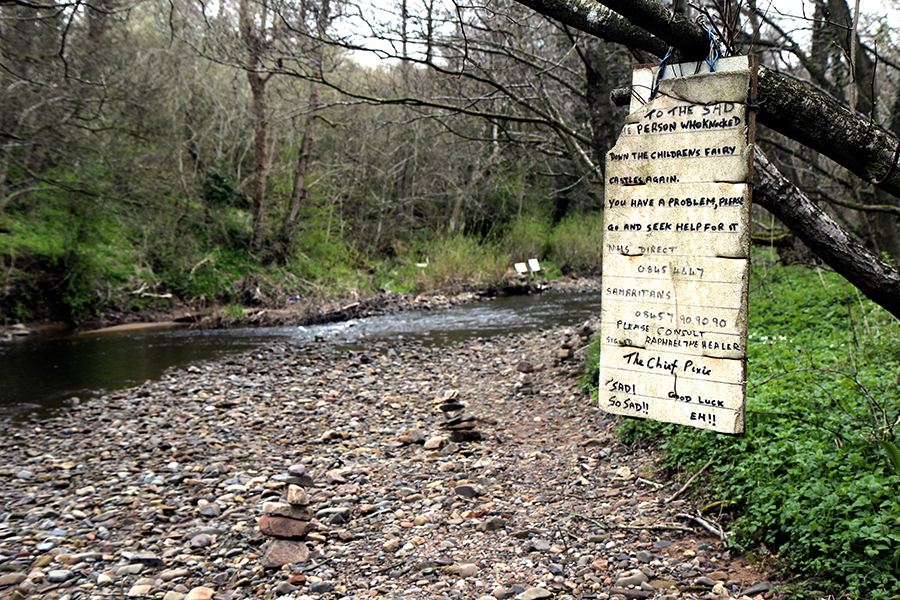 TO THE SAD
PERSON WHO KNOCKED
DOWN THE CHILDRENS FAIRY
CASTLES AGAIN.
YOU HAVE A PROBLEM, PLEASE
GO AND SEEK HELP FOR IT
NHS DIRECT
0845 4647
SAMARITANS
08457 90 90 90
PLEASE CONSULT
SIGNED RAPHAEL THE HEALER
The Chief Pixie
SAD! GOOD LUCK
SO SAD!! EH!!